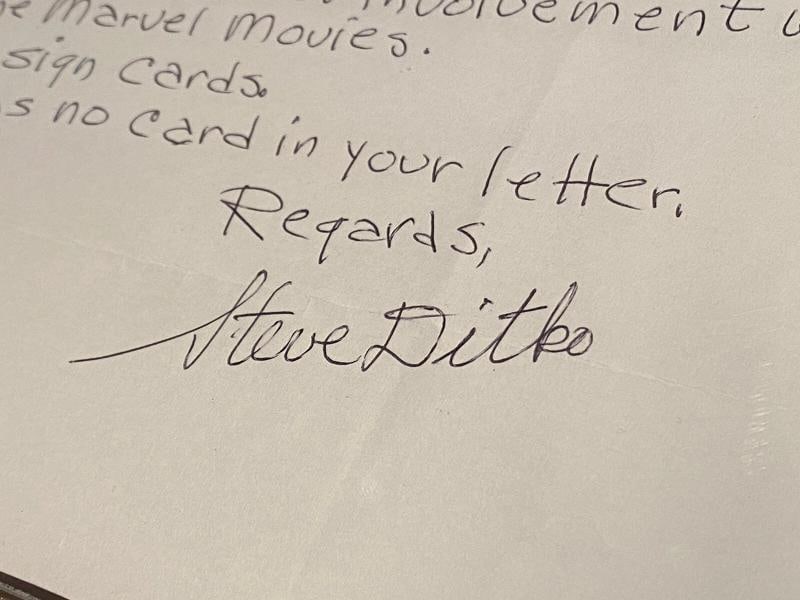 involvement
Marvel Movies.
sign cards.
no card in your letter.
Regards,
Steve Ditko